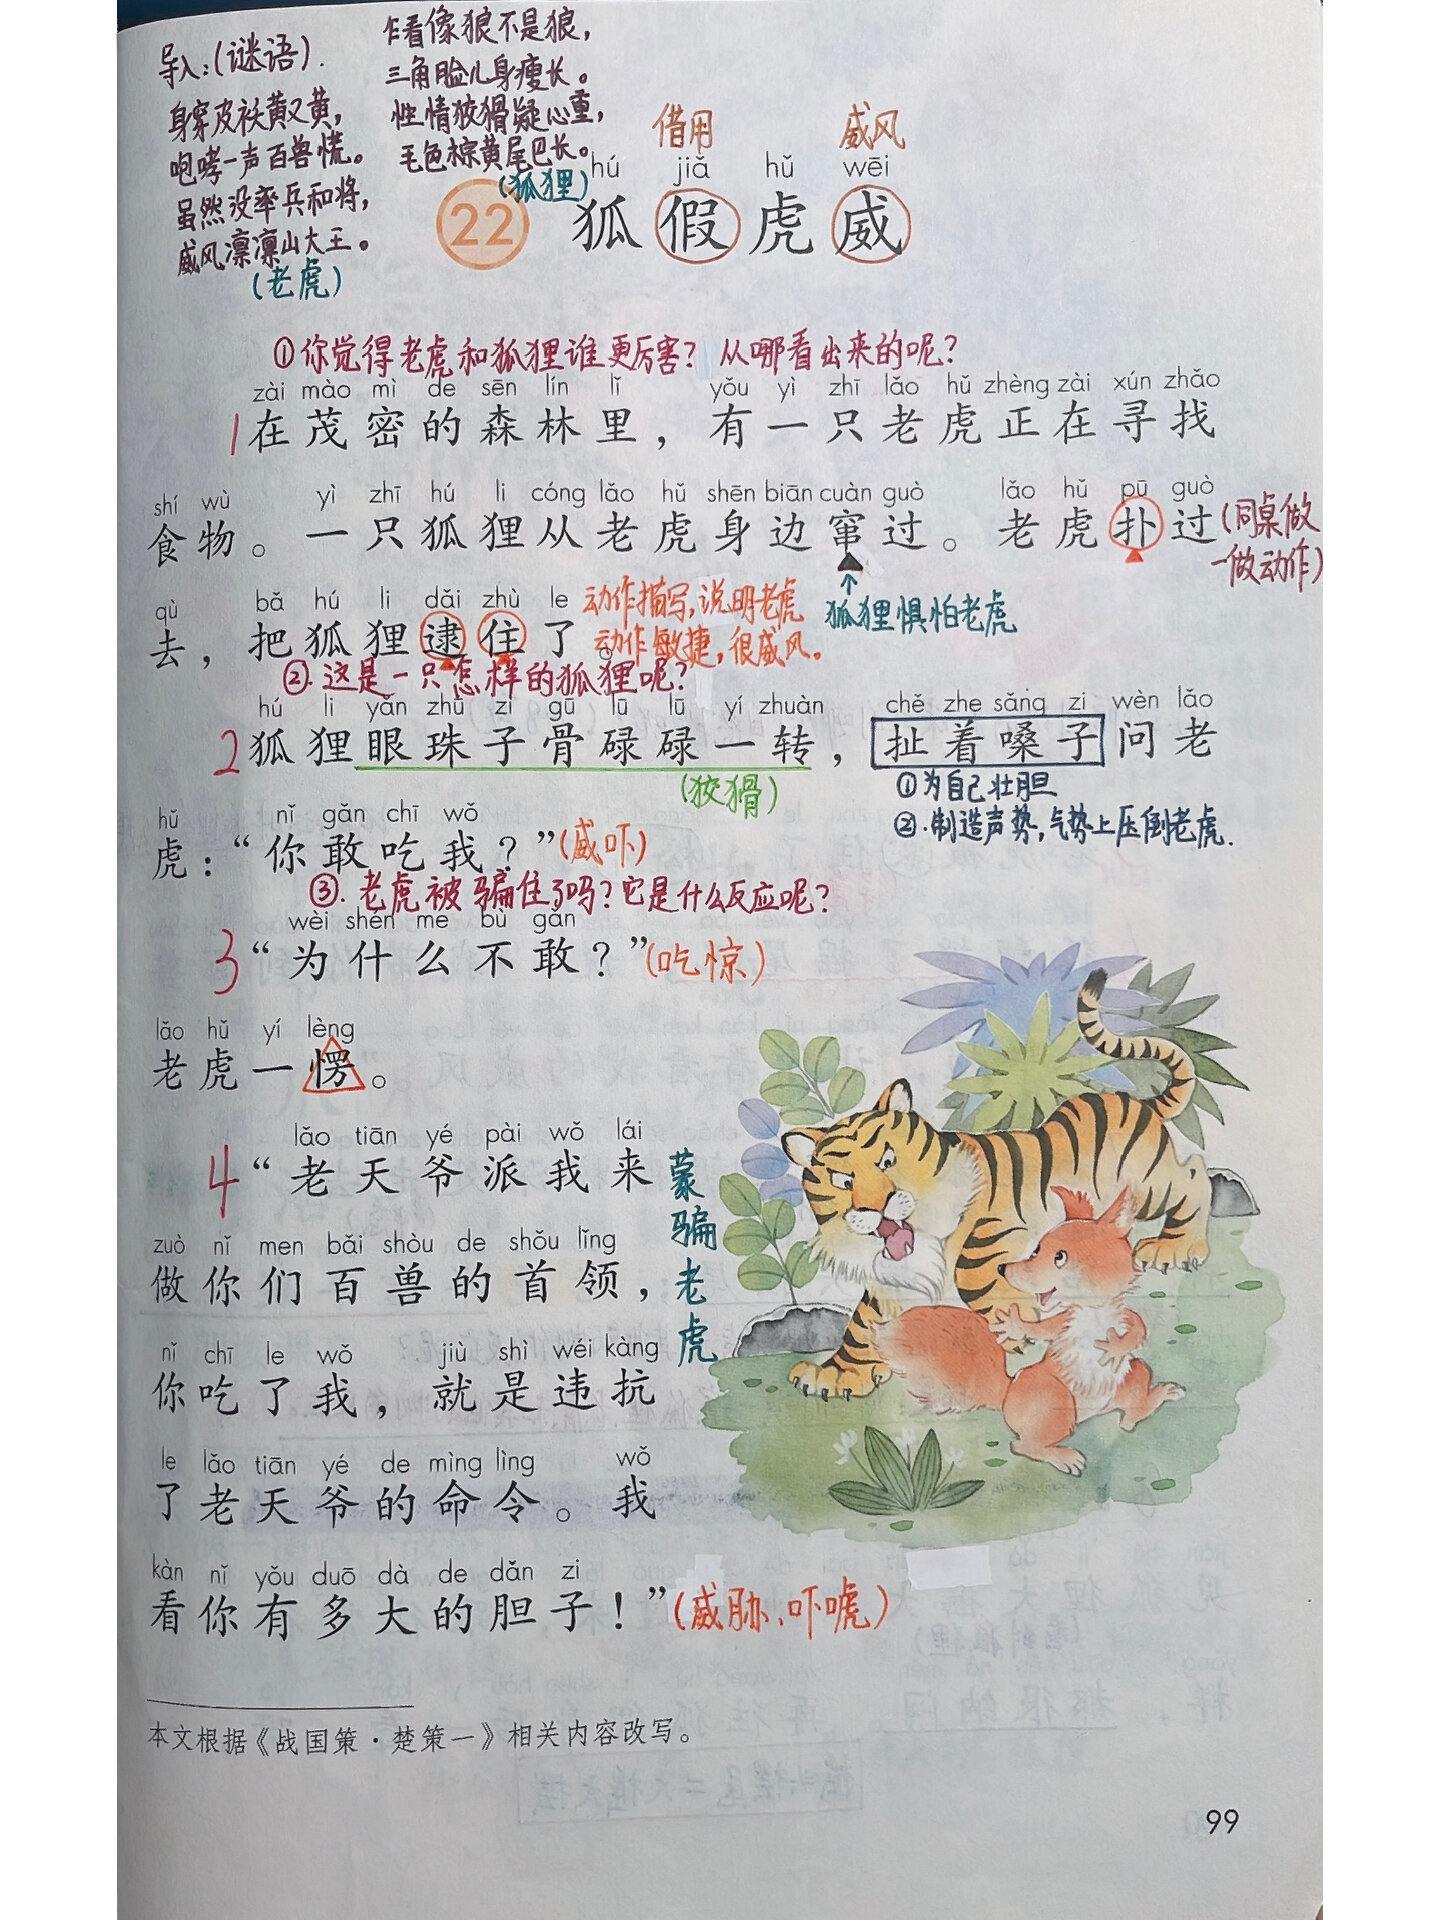 导入:(谜语).
身穿皮袄黄又黄,
咆哮一声百兽慌。
虽然没率兵和将,
威风凛凛山大王。
(老虎)
乍看像狼不是狼,
三角脸儿身瘦长。
性情狡猾疑心重,
毛色棕黄尾巴长。
(狐狸)
借用 威风
hú jiǎ hǔ wēi
22 狐假虎威
①你觉得老虎和狐狸谁更厉害?从哪看出来的呢?
zài mào mì de sēn lín lǐ yǒu yì zhī lǎo hǔ zhèng zài xún zhǎo
1 在茂密的森林里，有一只老虎正在寻找
shí wù yì zhī hú li cóng lǎo hǔ shēn biān cuàn guò lǎo hǔ pū guò
食物。一只狐狸从老虎身边窜过。老虎扑过
(同桌做
一做动作)
qù bǎ hú li dǎi zhù le
去，把狐狸逮住了。
动作描写,说明老虎
动作敏捷,很威风。
↑
狐狸惧怕老虎
②.这是一只怎样的狐狸呢?
hú li yǎn zhū zi gū lū lū yí zhuàn chě zhe sǎng zi wèn lǎo
2 狐狸眼珠子骨碌碌一转，扯着嗓子问老
(狡猾)
①为自己壮胆
②.制造声势,气势上压倒老虎.
hǔ nǐ gǎn chī wǒ
虎：“你敢吃我？”(威吓)
③.老虎被骗住了吗?它是什么反应呢?
wèi shén me bù gǎn
3 “为什么不敢？”(吃惊)
lǎo hǔ yí lèng
老虎一愣。
lǎo tiān yé pài wǒ lái
4 “老天爷派我来
zuò nǐ men bǎi shòu de shǒu lǐng
做你们百兽的首领，
nǐ chī le wǒ jiù shì wéi kàng
你吃了我，就是违抗
le lǎo tiān yé de mìng lìng wǒ
了老天爷的命令。我
kàn nǐ yǒu duō dà de dǎn zi
看你有多大的胆子！”(威胁、吓唬)
蒙骗老虎
本文根据《战国策·楚策一》相关内容改写。
99